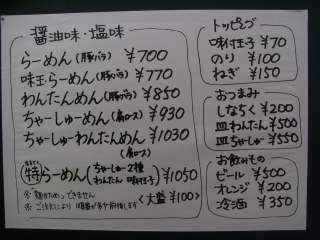 醤油味・塩味
らーめん(豚バラ) ¥700
味玉らーめん(豚バラ) ¥770
わんたんめん(豚バラ) ¥850
ちゃーしゅーめん(肩ロース) ¥930
ちゃーしゅーわんたんめん(肩ロース) ¥1030
特らーめん(ちゃーしゅー2種 わんたん 味付玉子) ¥1050
※「麺かため」できません
※ご注文により 順番が多少前後します
<大盛¥100>
トッピング
味付玉子 ¥70
のり ¥100
ねぎ ¥150
おつまみ
しなちく ¥200
皿わんたん ¥500
皿ちゃーしゅー ¥550
お飲みもの
ビール ¥500
オレンジ ¥200
冷酒 ¥350